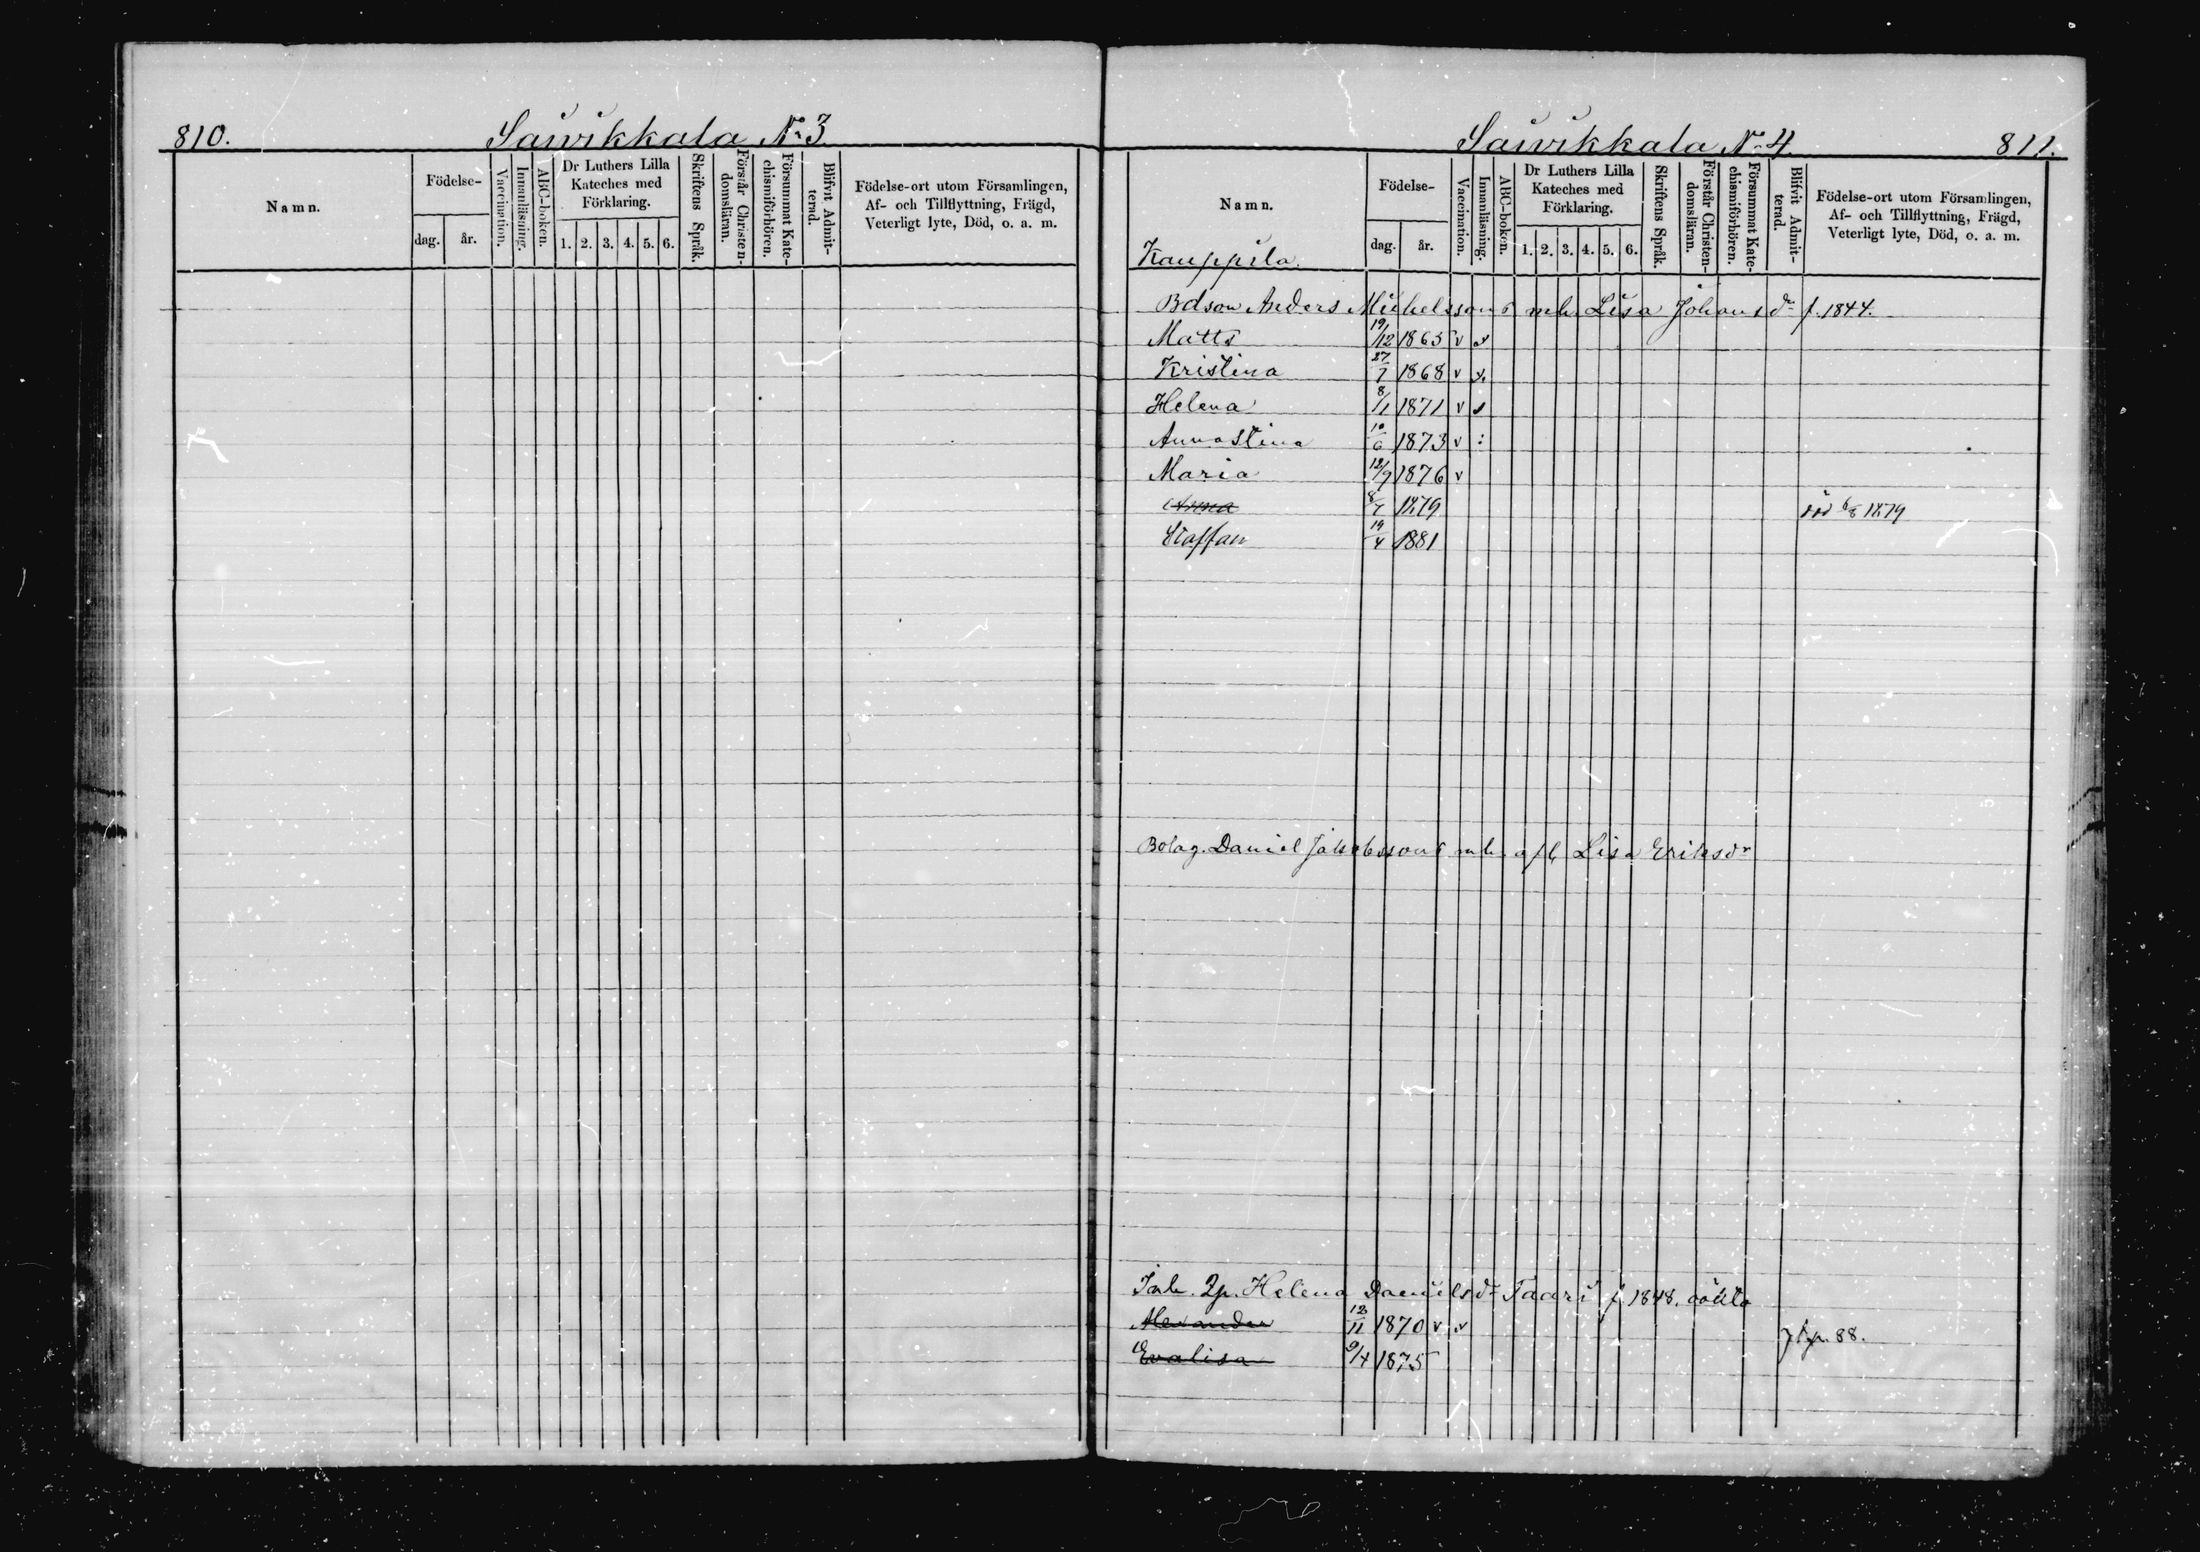 810. Saivikkala No 3
Namn.
Födelse-
dag. år.
Vaccination.
Innanläsning.
ABC-boken.
Dr Luthers Lilla
Kateches med
Förklaring.
1. 2. 3. 4. 5. 6.
Skriftens Språk.
Förstår Christen-
domsläran.
Försummat Kate-
chismiförhören.
Blifvit Admit-
terad.
Födelse-ort utom Församlingen,
Af- och Tillflyttning, Frägd,
Veterligt lyte, Död, o. a. m.
Saivikkala No 4. 811.
Namn.
Födelse-
dag. år.
Vaccination.
Innanläsning.
ABC-boken.
Dr Luthers Lilla
Kateches med
Förklaring.
1. 2. 3. 4. 5. 6.
Skriftens Språk.
Förstår Christen-
domsläran.
Försummat Kate-
chismiförhören.
Blifvit Admit-
terad.
Födelse-ort utom Församlingen,
Af- och Tillflyttning, Frägd,
Veterligt lyte, Död, o. a. m.
Kauppila.
Bdson Anders Michelssons mh. Lisa Johansdr f. 1844.
Matts 19/12 1865 v v
Kristina 27/7 1868 v v.
Helena 8/1 1871 v v
Annastina 10/6 1873 v :
Maria 12/9 1876 v
Anna 8/7 1879 död 6/8 1879
Staffan 19/4 1881
Bolag. Daniel Jakobssons mh. afl. Lisa Eriksdr
Inh. Qp. Helena Danielsdr Taari f. 1848. oäkta
Alexander 12/11 1870 v v
88.
Evalisa 9/4 1875